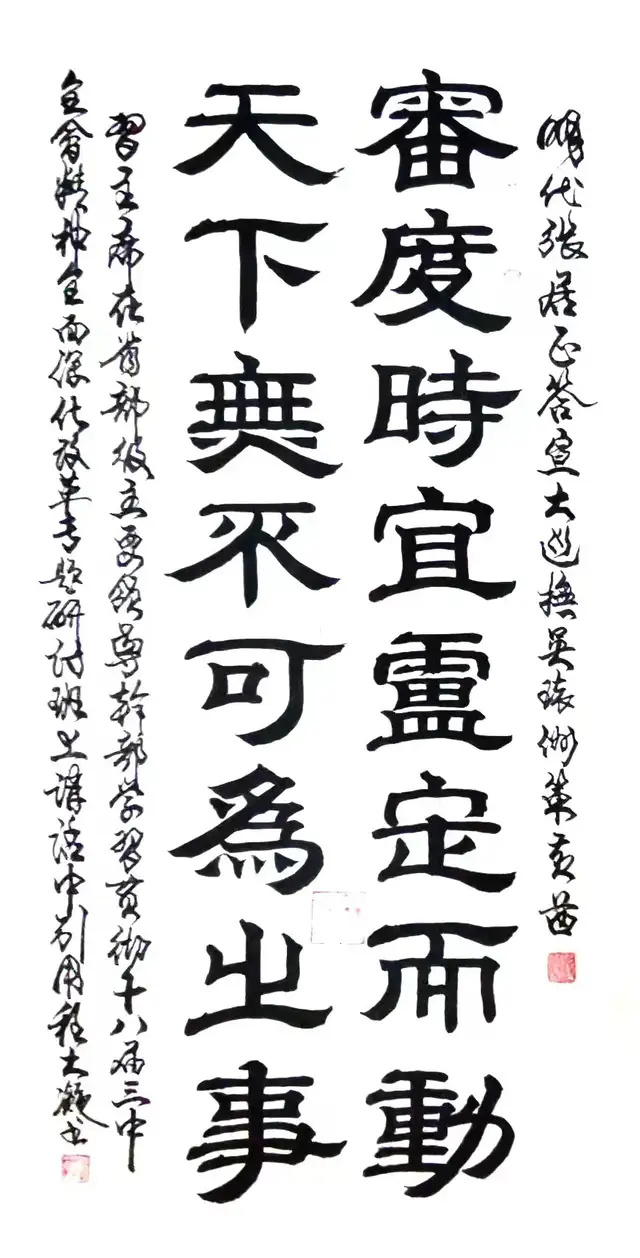 明代張居正答宣大巡撫吳環洲策黃酋
審度時宜盧定而動
天下無不可為之事
習主席在省部級主要領導幹部學習貫徹十八屆三中
全會精神全面深化改革专题研討班上講話中引用程大凝書